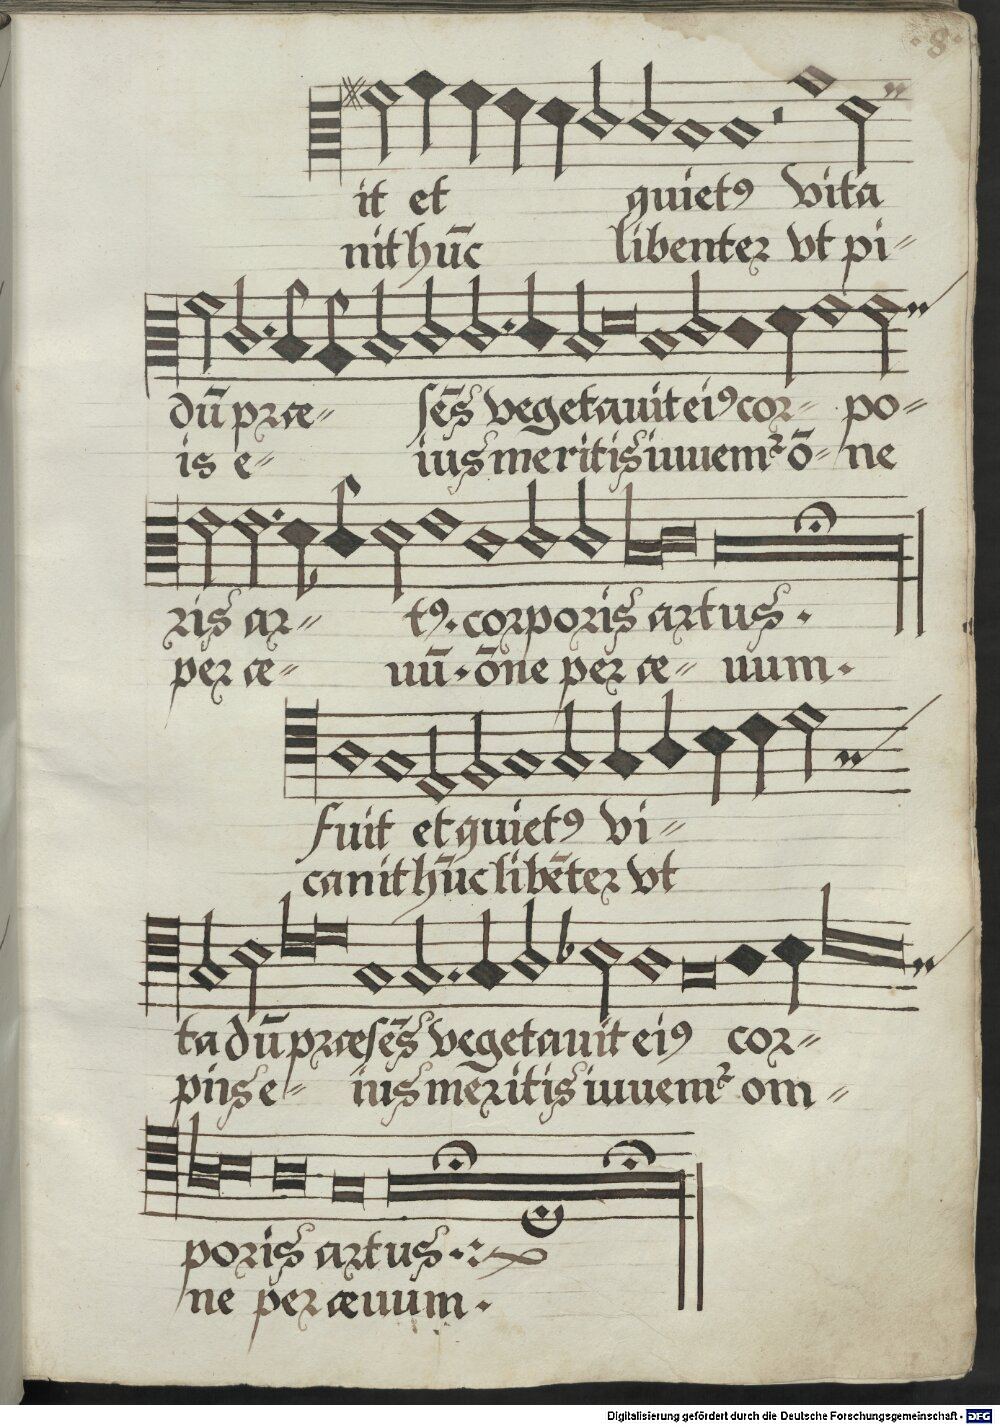 ·8·
it et quietꝰ vita
nit hūc libenter vt pi⸗
dū præ⸗ sēs vegetauit eiꝰ cor⸗ po⸗
is e⸗ ius meritis iuuem᷑ ō⸗ ne
ris ar⸗ tꝰ. corporis artus.
per æ⸗ uū. ōne per æ⸗ uum.
fuit et quietꝰ vi⸗
canit hūc libēter vt
ta dū præsēs vegetauit eiꝰ cor⸗
pijs e⸗ ius meritis iuuem᷑ om⸗
poris artus.
ne per æuum.
Digitalisierung gefördert durch die Deutsche Forschungsgemeinschaft - DFG